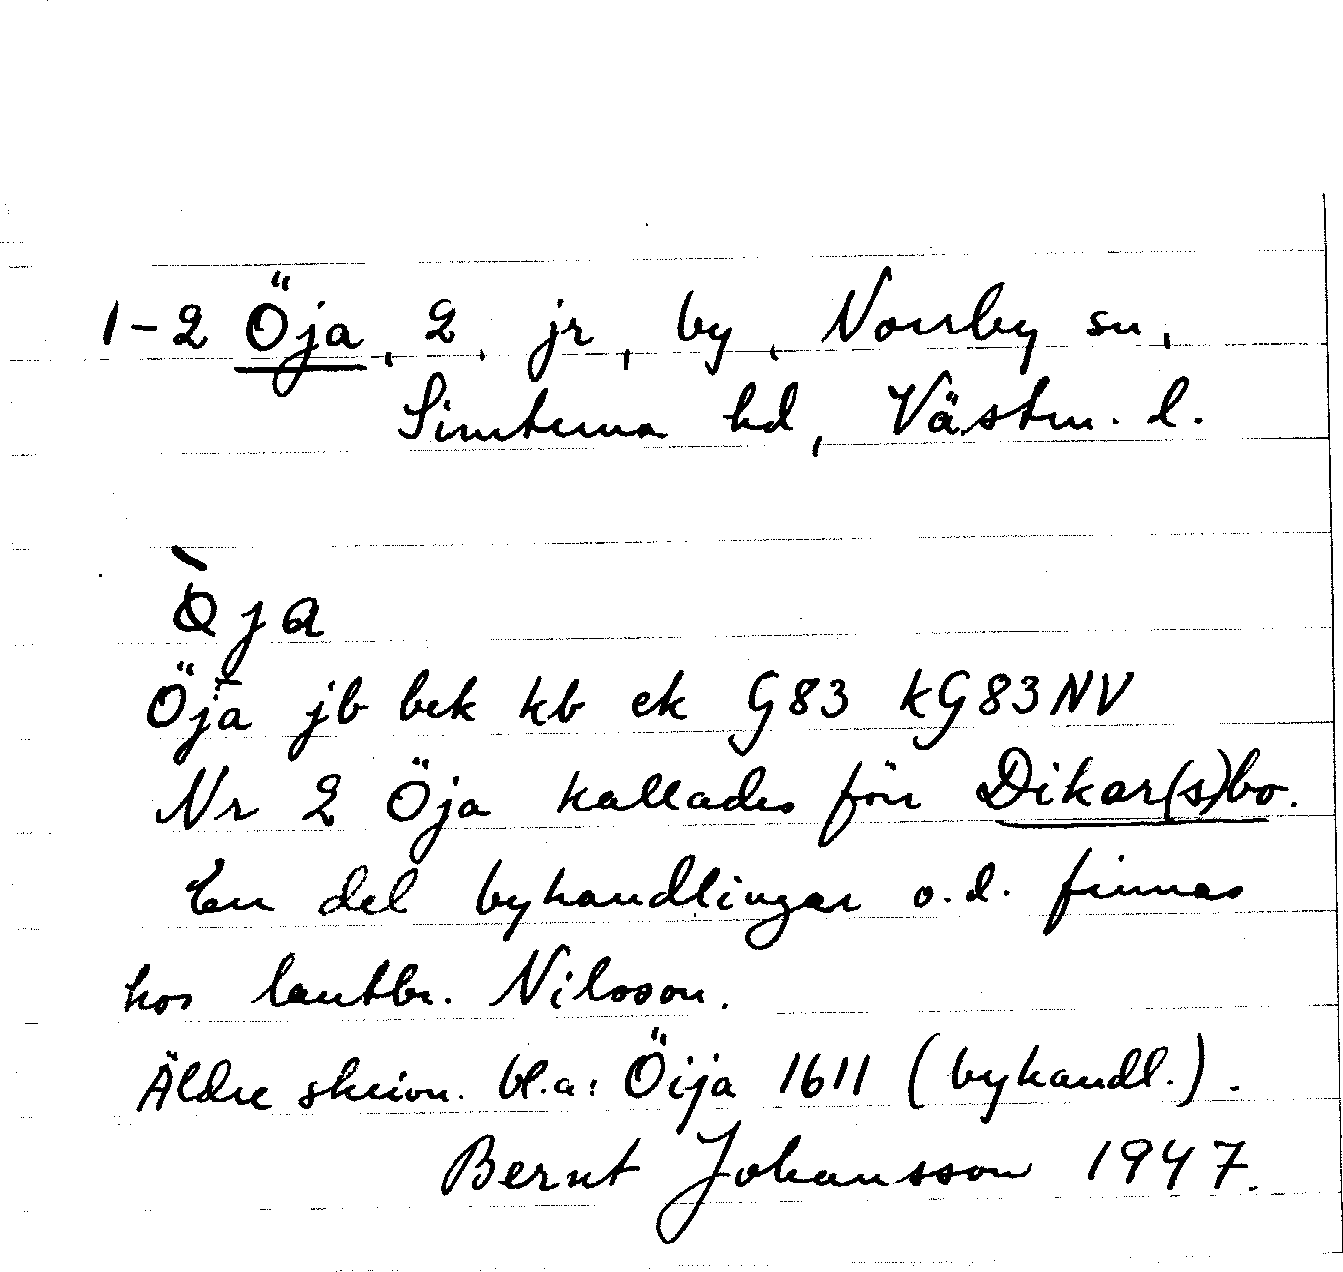 1-2 Öja, 2, jr, by, Norrby sn,
Simtuna hd, Västm. l.
Ö̀ja
Öja jb bek kb ek G83 kG83NV
Nr 2 Öja kallades förr Dikar(s)bo.
En del byhandlingar o.d. finnas
hos lantbr. Nilsson.
Äldre skrivn. bl.a: Öija 1611 (byhandl.).
Bernt Johansson 1947.